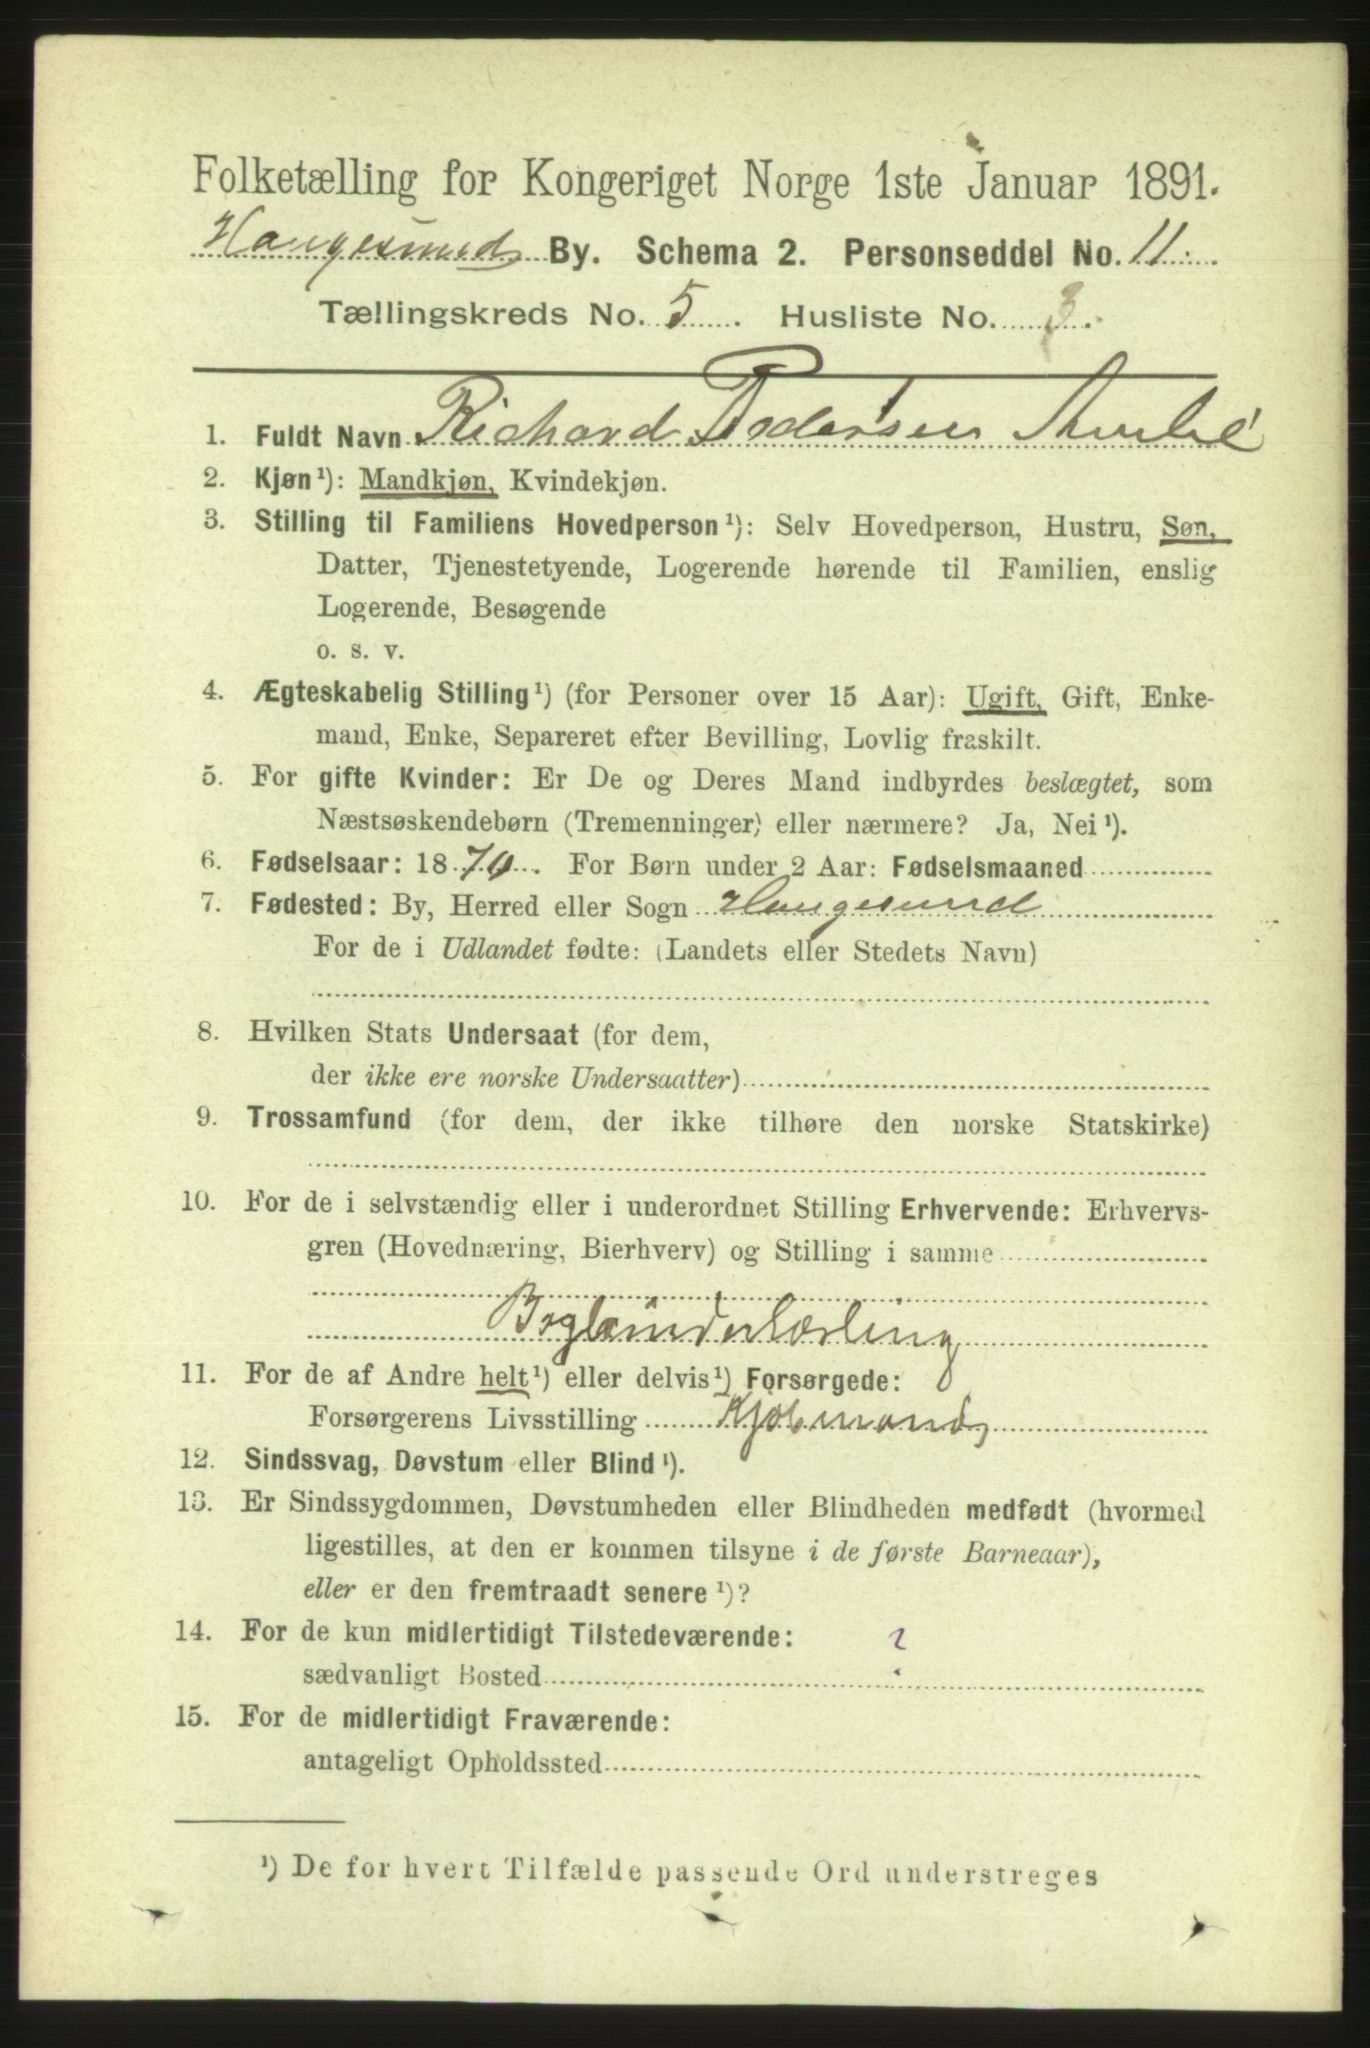 Folketælling for Kongeriget Norge 1ste Januar 1891.
Haugesund By. Schema 2. Personseddel No. 11.
Tællingskreds No. 5. Husliste No. 3.
1. Fuldt Navn Richard Pedersen
2. Kjøn¹): Mandkjøn, Kvindekjøn.
3. Stilling til Familiens Hovedperson¹): Selv Hovedperson, Hustru, Søn,
Datter, Tjenestetyende, Logerende hørende til Familien, enslig
Logerende, Besøgende
o. s. v.
4. Ægteskabelig Stilling¹) (for Personer over 15 Aar): Ugift, Gift, Enke-
mand, Enke, Separeret efter Bevilling, Lovlig fraskilt.
5. For gifte Kvinder: Er De og Deres Mand indbyrdes beslægtet, som
Næstsøskendebørn (Tremenninger) eller nærmere? Ja, Nei¹).
6. Fødselsaar: 1870. For Børn under 2 Aar: Fødselsmaaned
7. Fødested: By, Herred eller Sogn Haugesund
For de i Udlandet fødte: (Landets eller Stedets Navn)
8. Hvilken Stats Undersaat (for dem,
der ikke ere norske Undersaatter)
9. Trossamfund (for dem, der ikke tilhøre den norske Statskirke)
10. For de i selvstændig eller i underordnet Stilling Erhvervende: Erhvervs-
gren (Hovednæring, Bierhverv) og Stilling i samme
Bogbinderlærling
11. For de af Andre helt¹) eller delvis¹) Forsørgede:
Forsørgerens Livsstilling Kjøbmand
12. Sindssvag, Døvstum eller Blind¹).
13. Er Sindssygdommen, Døvstumheden eller Blindheden medfødt (hvormed
ligestilles, at den er kommen tilsyne i de første Barneaar),
eller er den fremtraadt senere¹)?
14. For de kun midlertidigt Tilstedeværende: ?
sædvanligt Bosted
15. For de midlertidigt Fraværende:
antageligt Opholdssted
¹) De for hvert Tilfælde passende Ord understreges